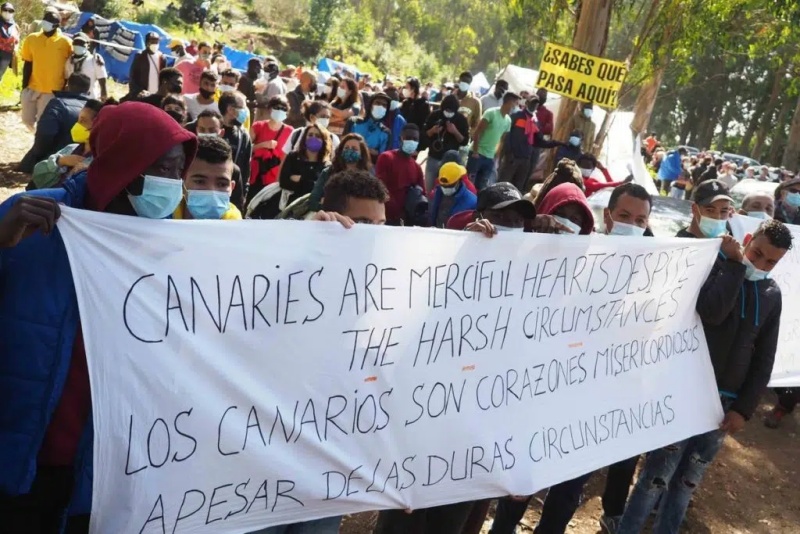 ¿SABES QUE
PASA AQUÍ?
CANARIES ARE MERCIFUL HEARTS DESPITE
THE HARSH CIRCUMSTANCES
LOS CANARIOS SON CORAZONES MISERICORDIOSUS
APESAR DE LAS DURAS CIRCUNSTANCIAS